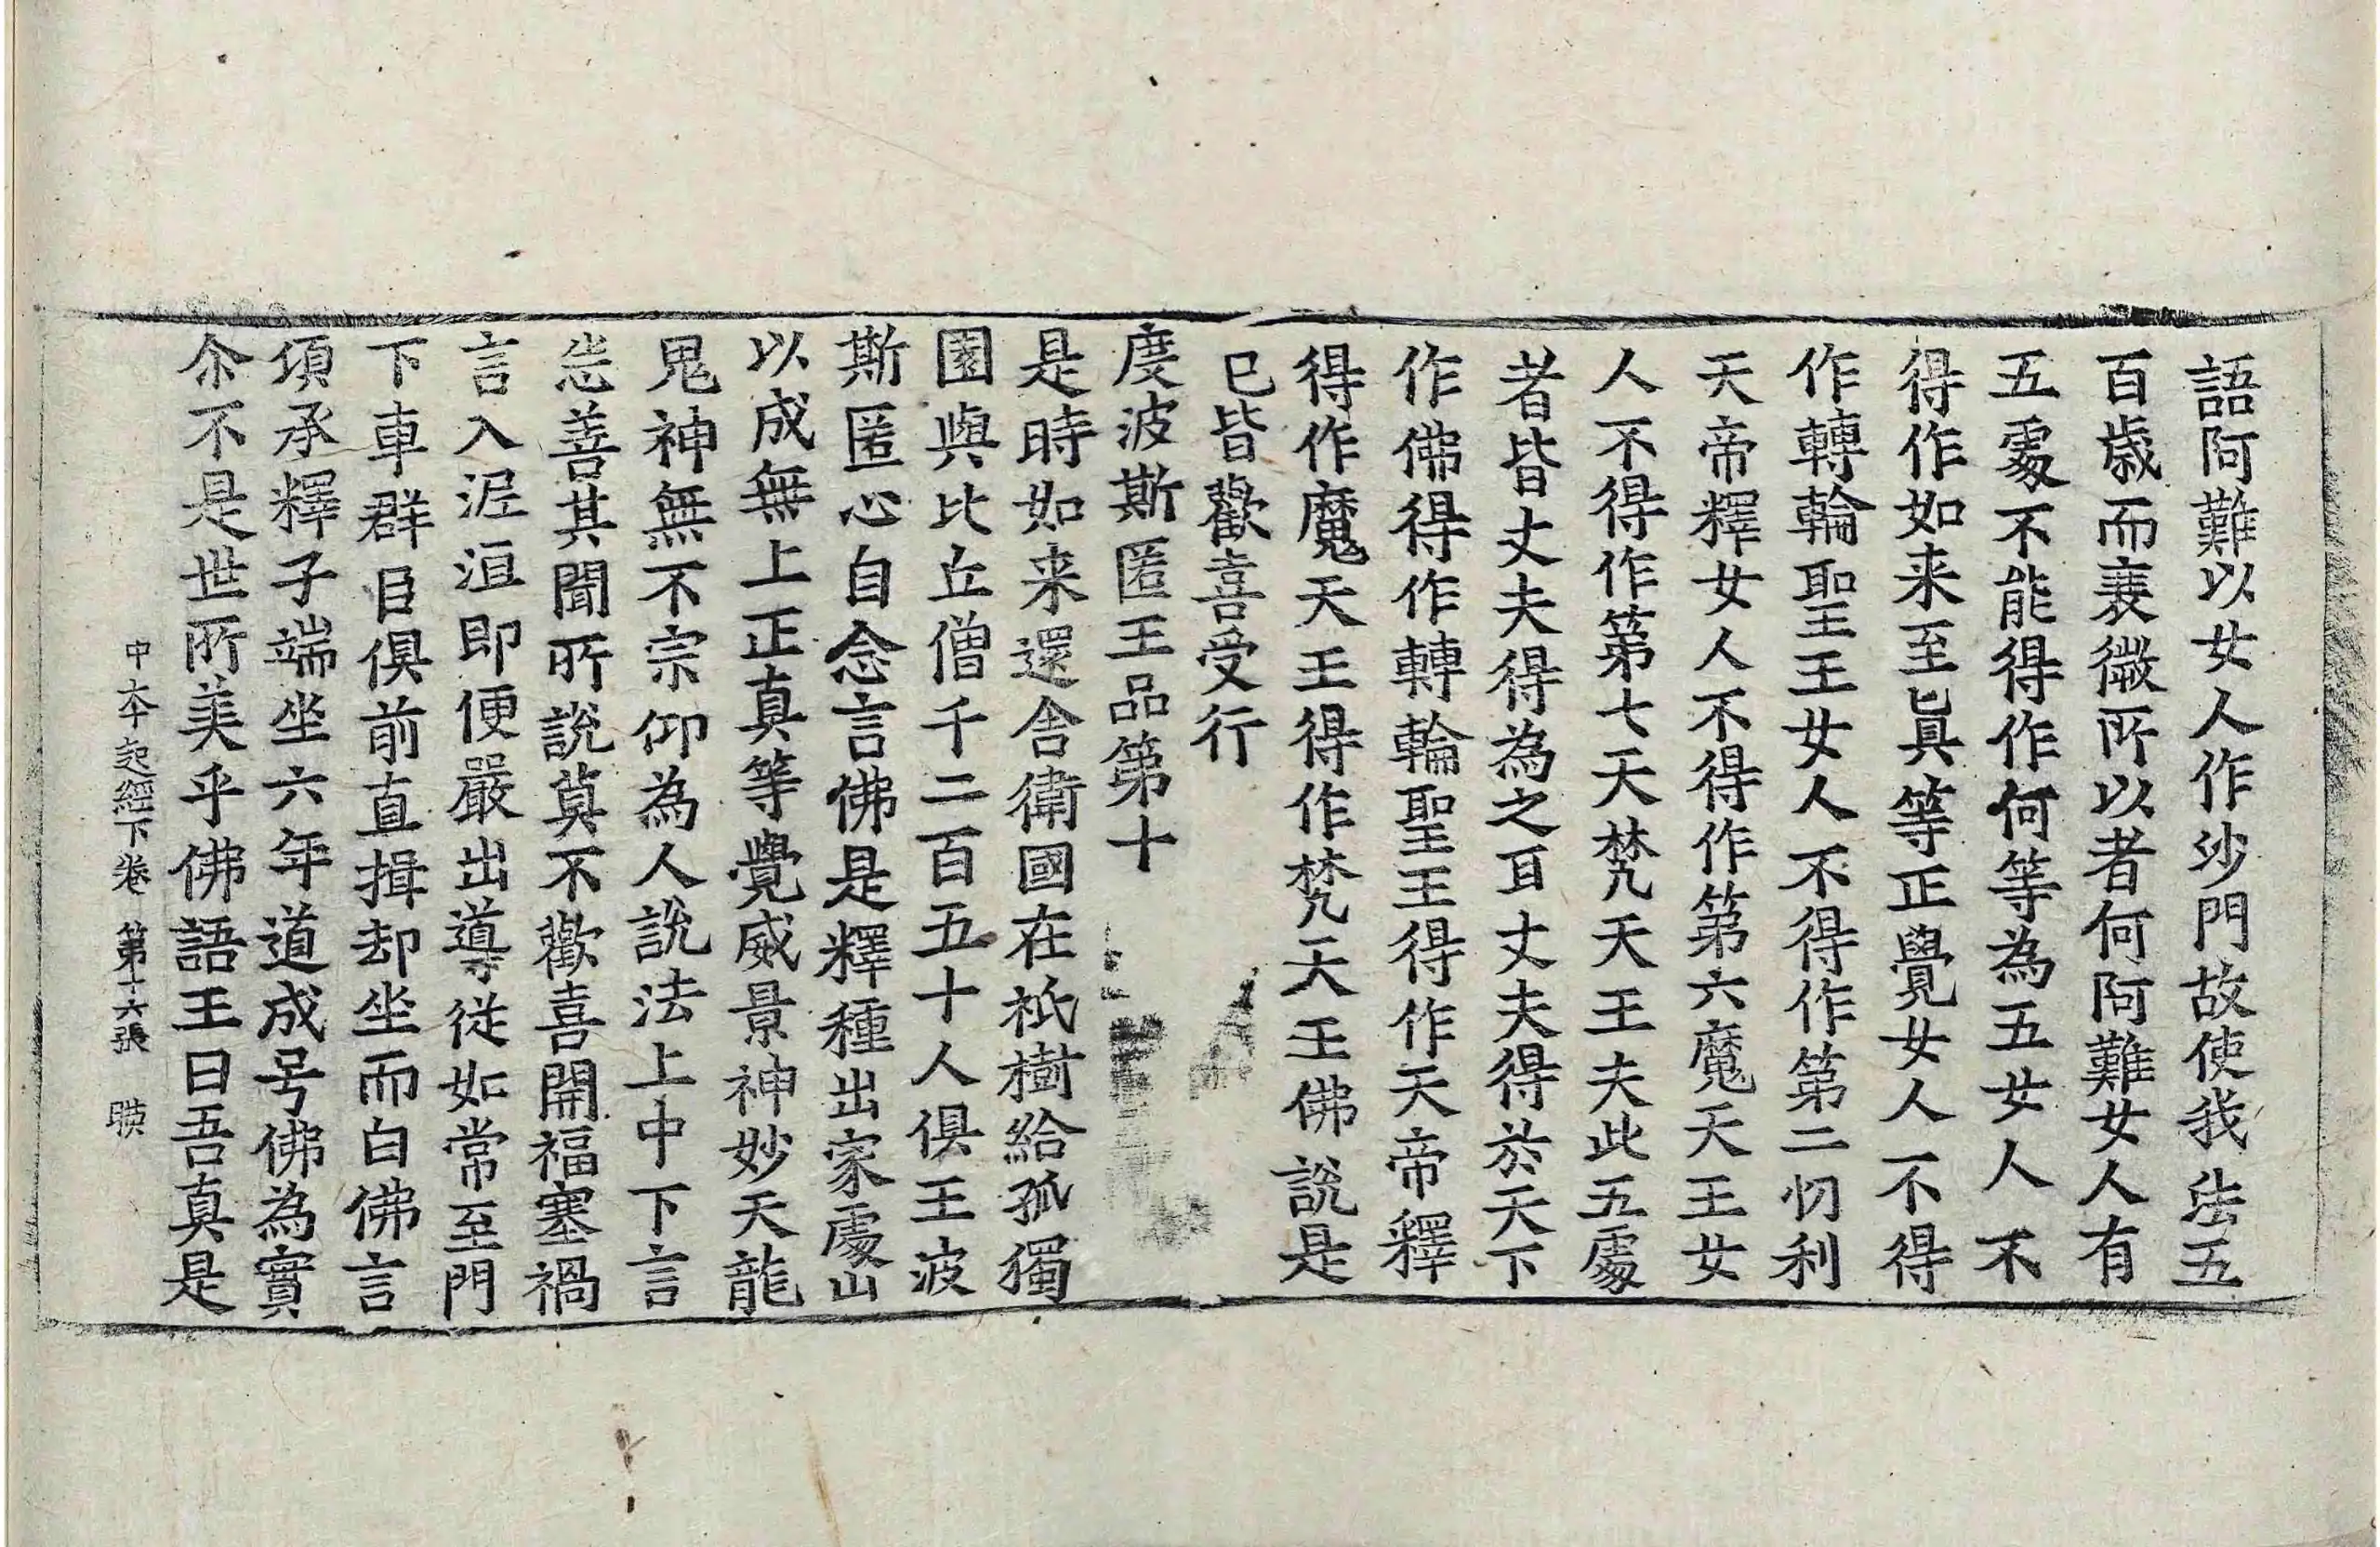 語阿難以女人作沙門故使我法五
百歲而衰微所以者何阿難女人有
五處不能得作何等為五女人不
得作如来至真等正覺女人不得
作轉輪聖王女人不得作第二忉利
天帝釋女人不得作第六魔天王女
人不得作第七天梵天王夫此五處
者皆丈夫得為之耳丈夫得於天下
作佛得作轉輪聖王得作天帝釋
得作魔天王得作梵天王佛說是
已皆歡喜受行
度波斯匿王品第十
是時如来還舍衛國在祇樹給孤獨
園與比丘僧千二百五十人俱王波
斯匿心自念言佛是釋種出家處山
以成無上正真等覺威景神妙天龍
鬼神無不宗仰為人說法上中下言
悉善其聞所說莫不歡喜開福塞禍
言入泥洹即便嚴出導從如常至門
下車群臣俱前直揖却坐而白佛言
湏承釋子端坐六年道成号佛為實
尒不是世所美乎佛語王曰吾真是
中夲起經下卷 第十六張 暎